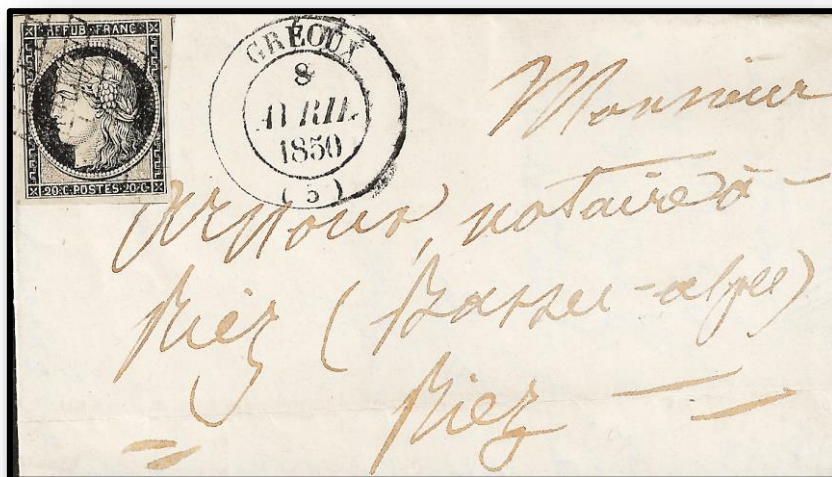 REPUB. FRANC.
20.C.POSTES.20.C.
GRÉOUX
8
AVRIL
1850
(5)
Monsieur
Arnoux, notaire à
Riez (Basses-alpes)
Riez